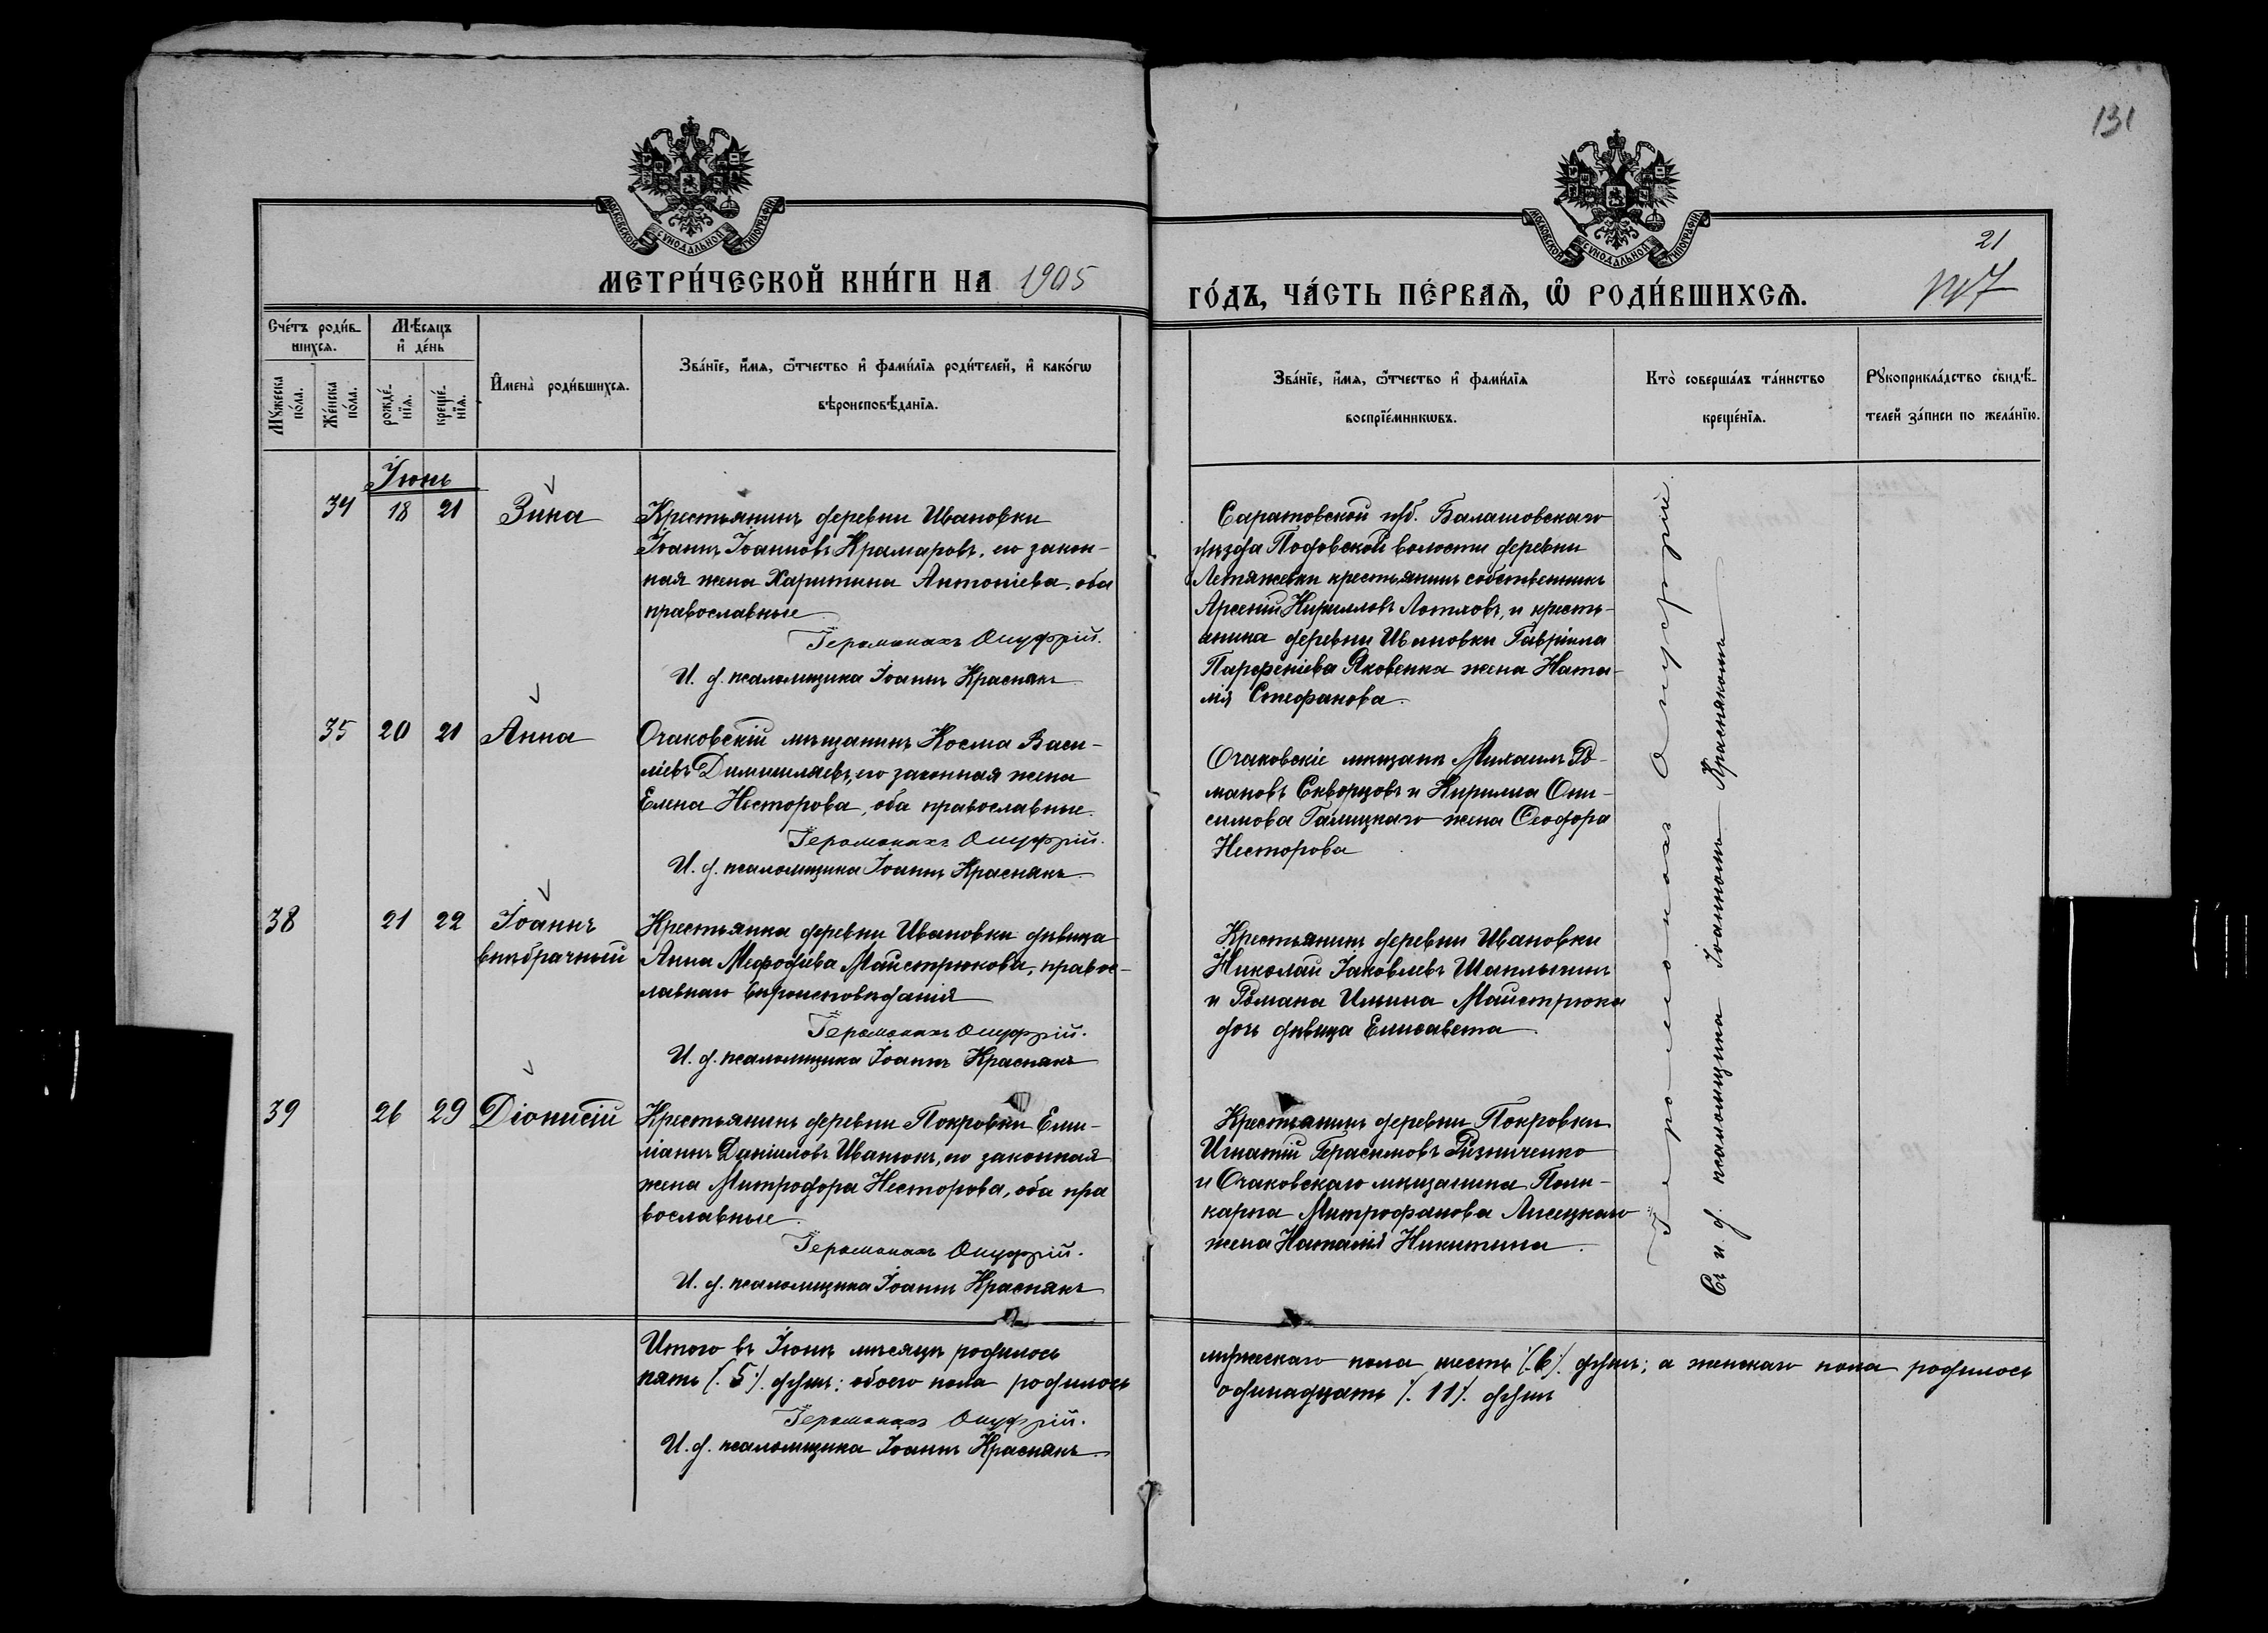 131
МОСКОВСКОЙ СѴНОДАЛЬНОЙ ТИПОГРАФІИ
МОСКОВСКОЙ СѴНОДАЛЬНОЙ ТИПОГРАФІИ
21
МЕТРИ́ЧЕСКОЙ КНИ́ГИ НА 1905
ГО́ДЪ, ЧА́СТЬ ПЕ́РВАѦ, Ѡ҆ РОДИ́ВШИХСѦ.
Сче́тъ роди́в-
шихсѧ.
Мѣ́сѧцъ
и҆ де́нь
Мꙋ́жеска
по́ла.
Же́нска
по́ла.
рожде́-
нїѧ.
креще́-
нїѧ.
И҆мена̀ роди́вшихсѧ.
Зва́нїе, и҆́мѧ, ѻ҆́тчество и҆ фами́лїѧ роди́телей, и҆ како́гѡ
вѣроисповѣ́данїѧ.
Зва́нїе, и҆́мѧ, ѻ҆́тчество и҆ фами́лїѧ
воспрїе́мникѡвъ.
Кто̀ соверша́лъ та́инство
креще́нїѧ.
Рꙋкоприкла́дство свидѣ́-
телей за́писи по жела́нїю.
Іюнь
34 18 21 Зина
Крестьянинъ деревни Ивановки
Іоаннъ Іоанновъ Крамаровъ, его закон-
ная жена Харитина Антоніева, оба
православные
Іеромонахъ Онуфрій.
И. д. псаломщика Іоаннъ Краснякъ
Саратовской губ. Балашовскаго
уѣзда Подовской волости деревни
Летяжевки крестьянинъ собственникъ
Арсеній Кирилловъ Лотяовъ, и кресть-
янина деревни Ивановки Гавріила
Парфеніева Яковенка жена Ната-
лія Стефанова.
35 20 21 Анна
Очаковскій мѣщанинъ Косма Васи-
ліевъ Димишляевъ, его законная жена
Елена Несторова, оба православные.
Іеромонахъ Онуфрій.
И. д. псаломщика Іоаннъ Краснякъ
Очаковскіе мѣщане Михаилъ Ро-
мановъ Скворцовъ и Кирилла Они-
симова Галицкаго жена Ѳеодора
Несторова
38 21 22 Іоаннъ
внѣбрачный
Крестьянка деревни Ивановки дѣвица
Анна Меѳодіева Майстрюкова, правос-
лавнаго вѣроисповѣданія
Іеромонахъ Онуфрій.
И. д. псаломщика Іоаннъ Краснякъ
Крестьянинъ деревни Ивановки
Николай Іаковлевъ Шаплыгинъ
и Романа Ильина Майстрюка
дочь дѣвица Елисавета
39 26 29 Діонисій
Крестьянинъ деревни Покровки Еми-
ліанъ Даніиловъ Иванюкъ, его законная
жена Митродора Несторова, оба пра
вославные.
Іеромонахъ Онуфрій.
И. д. псаломщика Іоаннъ Краснякъ
Крестьянинъ деревни Покровки
Игнатій Герасимовъ Ризниченко
и Очаковскаго мѣщанина Поли-
карпа Митрофанова Лисецкаго
жена Наталія Никитина.
Іеромонахъ Онуфрій
Съ и. д. псаломщика Іоанномъ Краснякомъ
Итого въ Іюнѣ мѣсяцѣ родилось
мужескаго пола шесть /.6/. душъ; а женскаго пола родилось
пять /.5/. душъ; обоего пола родилось
одинадцать /.11/. душъ
Іеромонахъ Онуфрій.
И. д. псаломщика Іоаннъ Краснякъ.